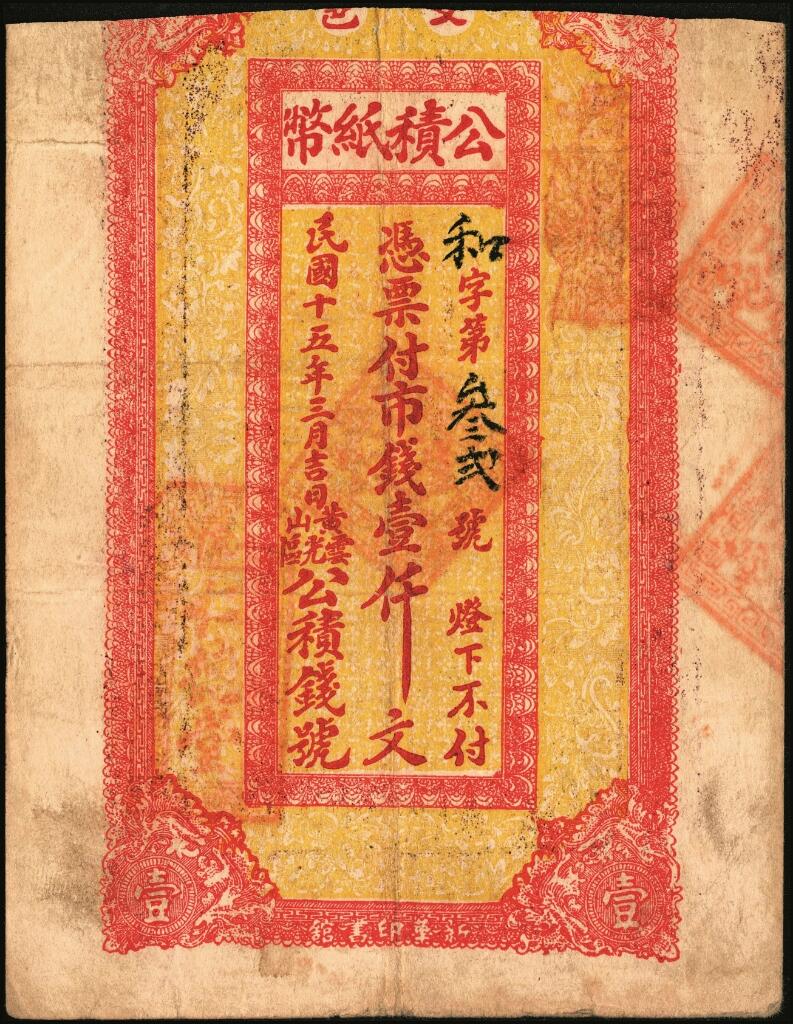 公積紙幣
和字第叁弍號 燈下不付
憑票付市錢壹仟文
民國十五年三月吉日
黃山
雲光區
公積錢號
壹
壹
新華印書館